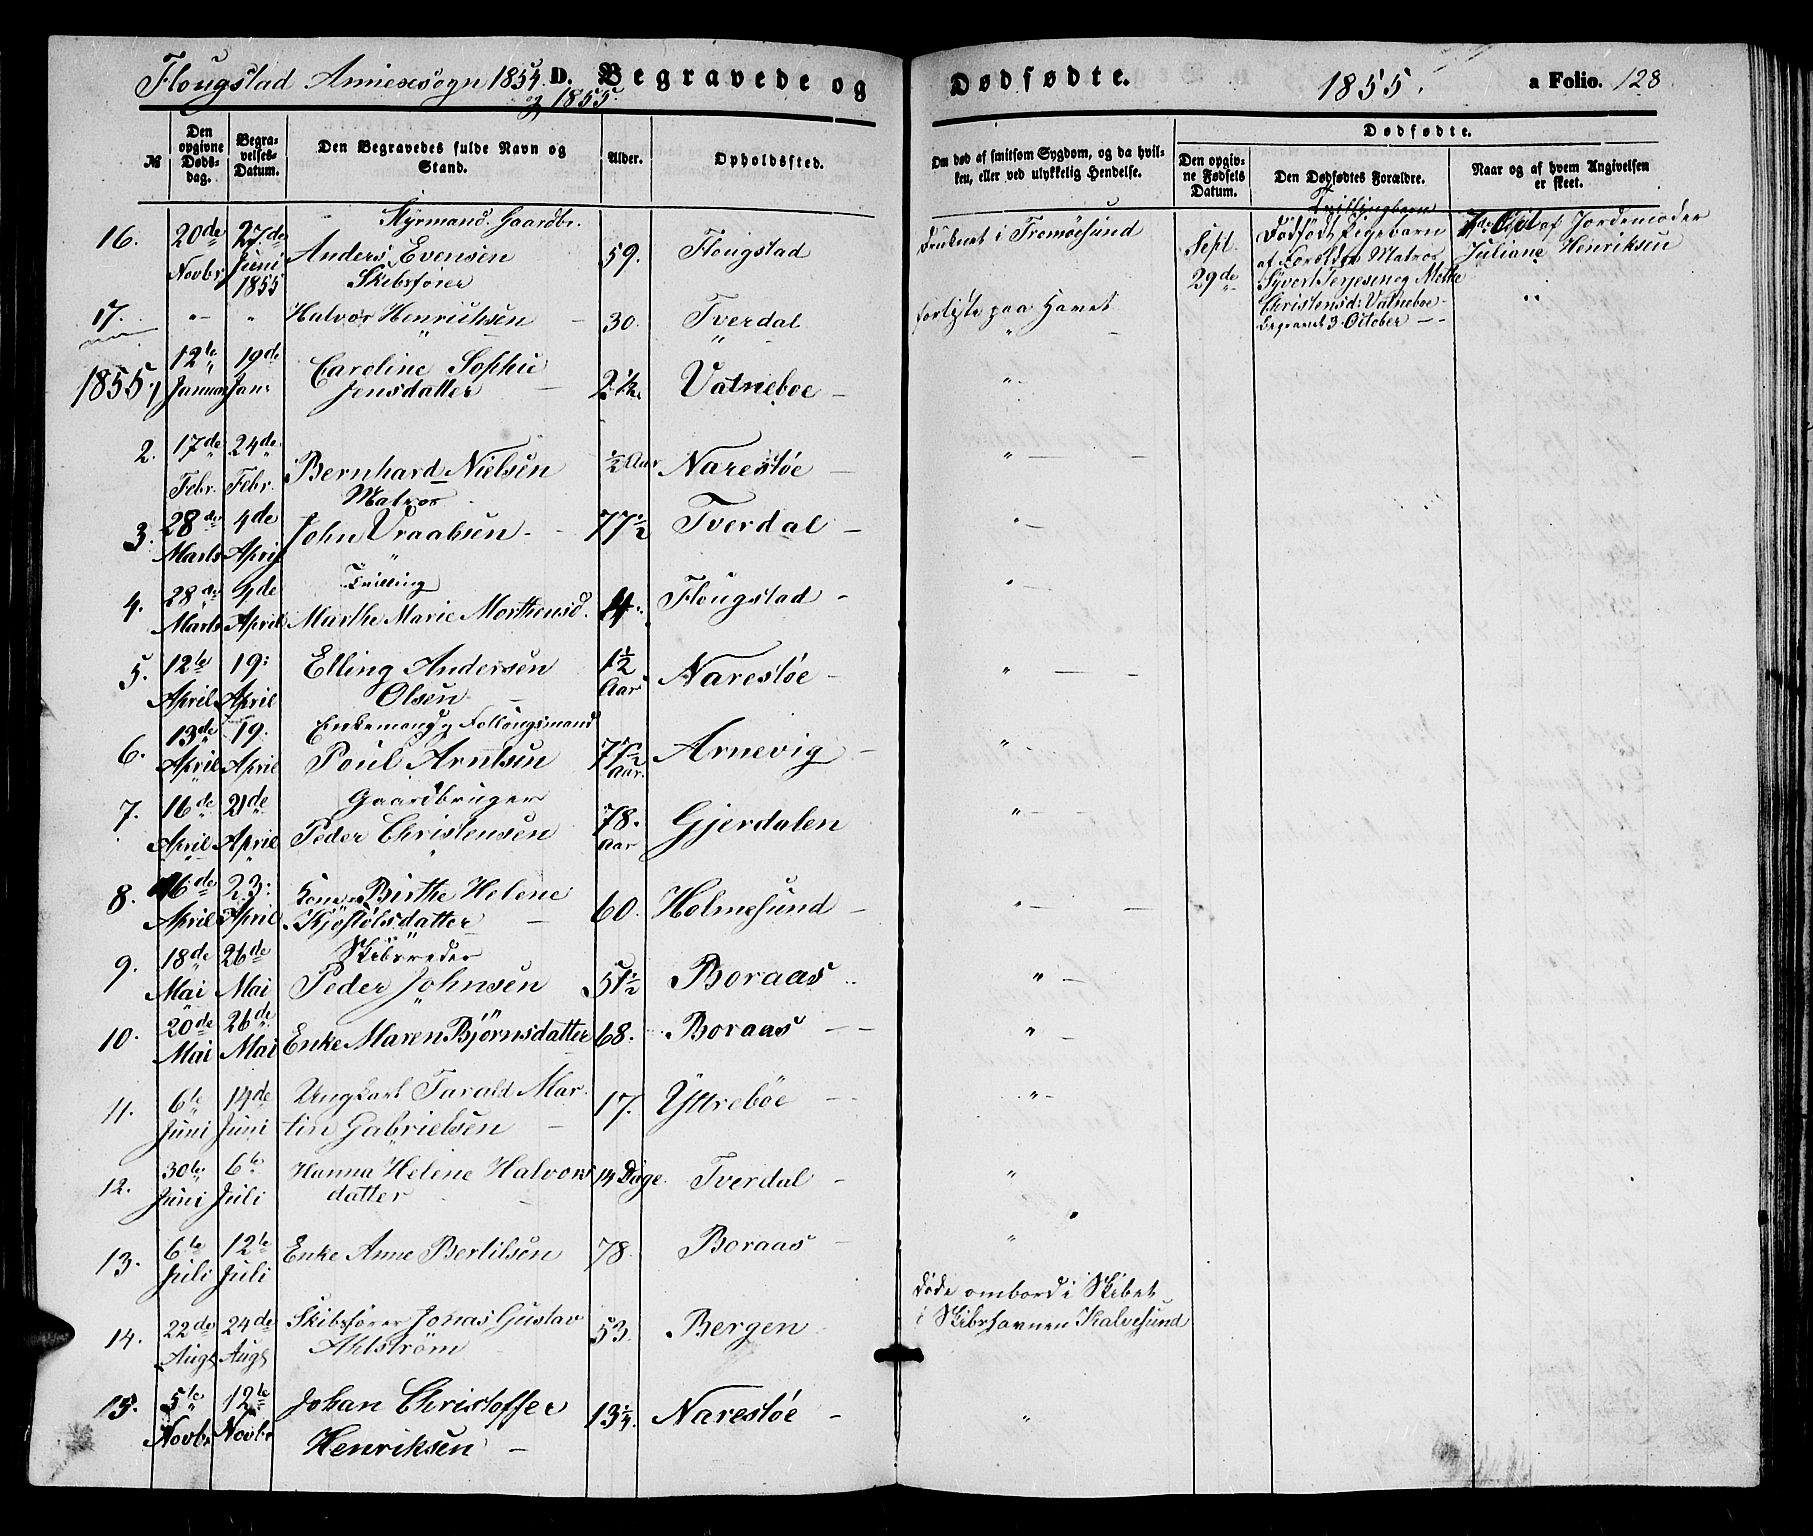 Flougstad Annexsogn 1854 D. Begravede og Dødfødte. 1855. a Folio. 128
og 1855.
№ Den opgivne Døds-dag. Begravelses-Datum. Den Begravedes fulde Navn og Stand. Alder. Opholdsfted. Om død af smitsom Sygdom, og da hvilken, eller ved ulykkelig Hendelse. Dødfødte. Den opgivne Fødsels Datum. Den Dødfødtes Forældre. Naar og af hvem Angivelsen er skeet.
Styrmand. Gaardbr.
16. 20de Novbr 27de Juni 1855 Anders Evensen 59. Flougstad Druknet i Tromøesund
Skibsfører
17. " " Halvor Henrichsen 30. Tverdal forliste paa Havet
1855. 1 12te Januar 19de Jan: Caroline Sophie Jensdatter 2 1/2 Vatneboe
2. 17de Febr. 24de Febr. Bernhard Nielsen 1/2 Aar Narestøe
Matros
3. 28de Marts 4de April John Vraalsen 77 1/2 Tverdal
Trilling
4. 28de Marts 4de April Marthe Marie Morthensd. 4. Flougstad
5. 12te April 19: April Elling Andersen Olsen 1 1/2 Aar Narestøe
Enkemand og Follougsmand
6. 13de April 19. April Poul Arntsen 77 1/2 Aar. Arnevig
Gaardbruger
7. 16de April 21de April Peder Christensen 78. Aar Gjerdalen
8. 16de April 23: April Kone Birthe Helene Kjøstølsdatter 60. Holmesund
Skibsreder
9. 18de Mai 26de Mai Peder Johnsen 51 1/2 Boraas
10. 20de Mai 26de Mai Enke Maren Bjørnsdatter 68. Boraas
11. 6te Juni 14de Juni Ungkarl Tarald Martin Gabrielsen 17. Yttrebøe
12. 30te Juni 6te Juli Hanna Heline Halvorsdatter 14 Dage Tverdal
13. 6te Juli 12te Juli Enke Anne Bertilsen 78. Boraas
14. 22de Augt 24de Augt Skibsfører Jonas Gustav Ahlstrøm 53. Bergen døde ombord i Skibet i Skibshavnen Kalvesund
15. 5te Novbr 12te Novbr Johan Christoffer Henriksen 13 1/4. Narestøe
Sept. 29de
Trillingbarn
Dødfødt Pigebarn
af Forældre Matros
Syvert Terjesen og Mette
Christensd: Vatneboe
Begravet 3. October
af Jordemoder
Juliane Henriksen